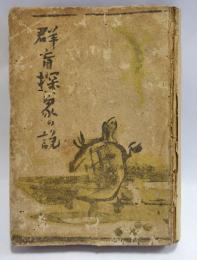 群盲探象の説